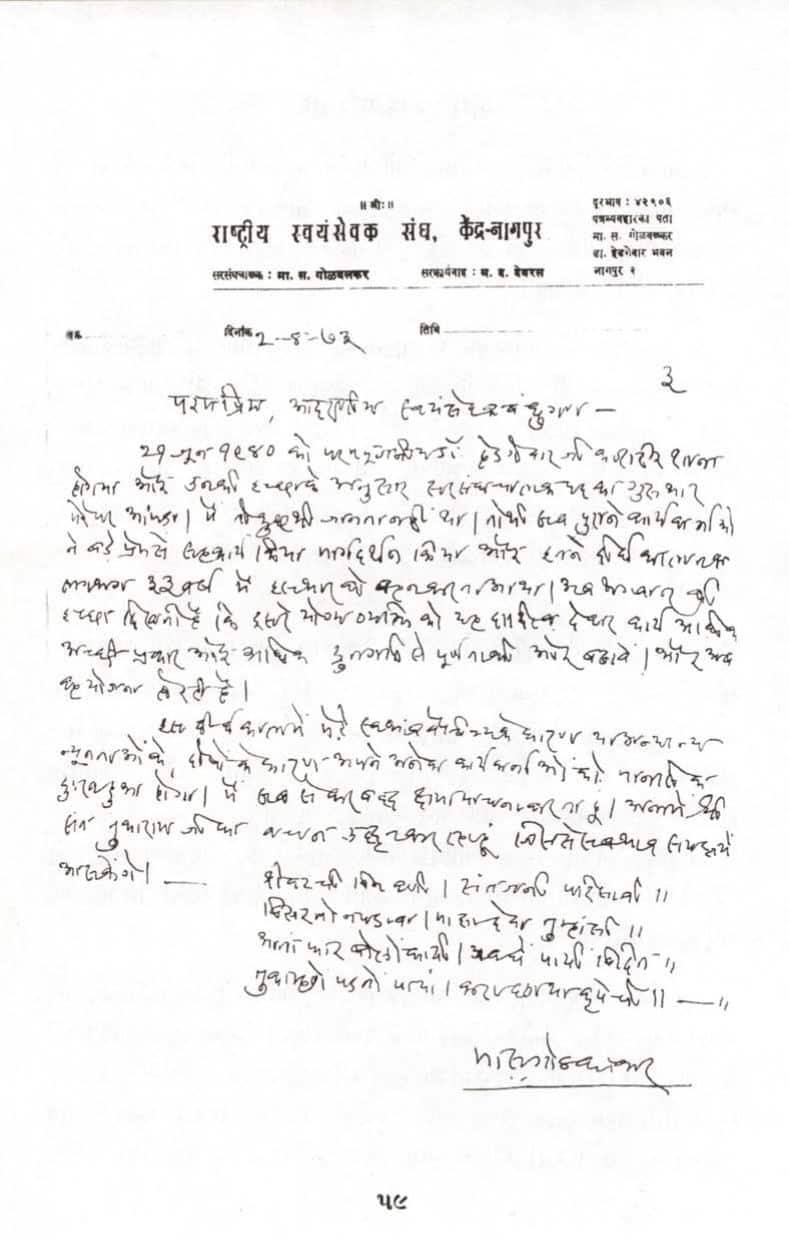 ॥ श्रीः॥
राष्ट्रीय स्वयंसेवक संघ, केंद्र-नागपुर
दूरभाष : ४२९०६
पत्रव्यवहारका पता
मा. स. गोळवलकर
डा. हेडगेवार भवन
नागपुर २
सरसंघचालक : मा. स. गोळवलकर सरकार्यवाह : म. द. देवरस
दिनांक २-४-७३ तिथि
३
परमप्रिय, आदरणीय स्वयंसेवक बंधुगण —
२१ जून १९४० को परमपूजनीय डॉ हेडगेवार जी का शरीर शान्त
होगया और उनकी इच्छाके अनुसार सरसंघचालक पद का गुरुभार
मेरेपर आपडा। मैं तो कुछभी जानता नहीं था। तोभी सब पुराने कार्यकर्ताओं
ने बडे प्रेमसे सहकार्य किया मार्गदर्शन किया और इतने दीर्घ कालतक
लगभग ३३ वर्ष मैं इस भार को वहन करता आया। अब भगवान की
इच्छा दिखती है कि दूसरे योग्य व्यक्ति को यह दायित्व देकर कार्य अधिक
अच्छी प्रकार और अधिक द्रुतगति से पूर्णताकी ओर बढावे। और अब
वह योजना होरही है।
इस दीर्घ कालमें मेरे स्वभाव वैचित्र्यके कारण या अन्यान्य
न्यूनताओंके, दोषोंके कारण अपने अनेक कार्यकर्ताओंको मानसिक
दुःख हुआ होगा। मैं सब से करबद्ध क्षमायाचना करता हूं। अन्तमें श्री
संत तुकाराम जी का वचन उद्धृत कर रहा हूं जिससे सब भाव समझमें
आसकेंगे। —
शेवटची विनवणी। संतजनीं परिसावी॥
विसर तो न पडावा। माझा देवा तुम्हांसी॥
आतां फार बोलों कायी। अवघें पायीं विदित॥
तुका म्हणे पडतों पायां। करा छाया कृपेची॥ —॥
मा. स. गोळवलकर
५९